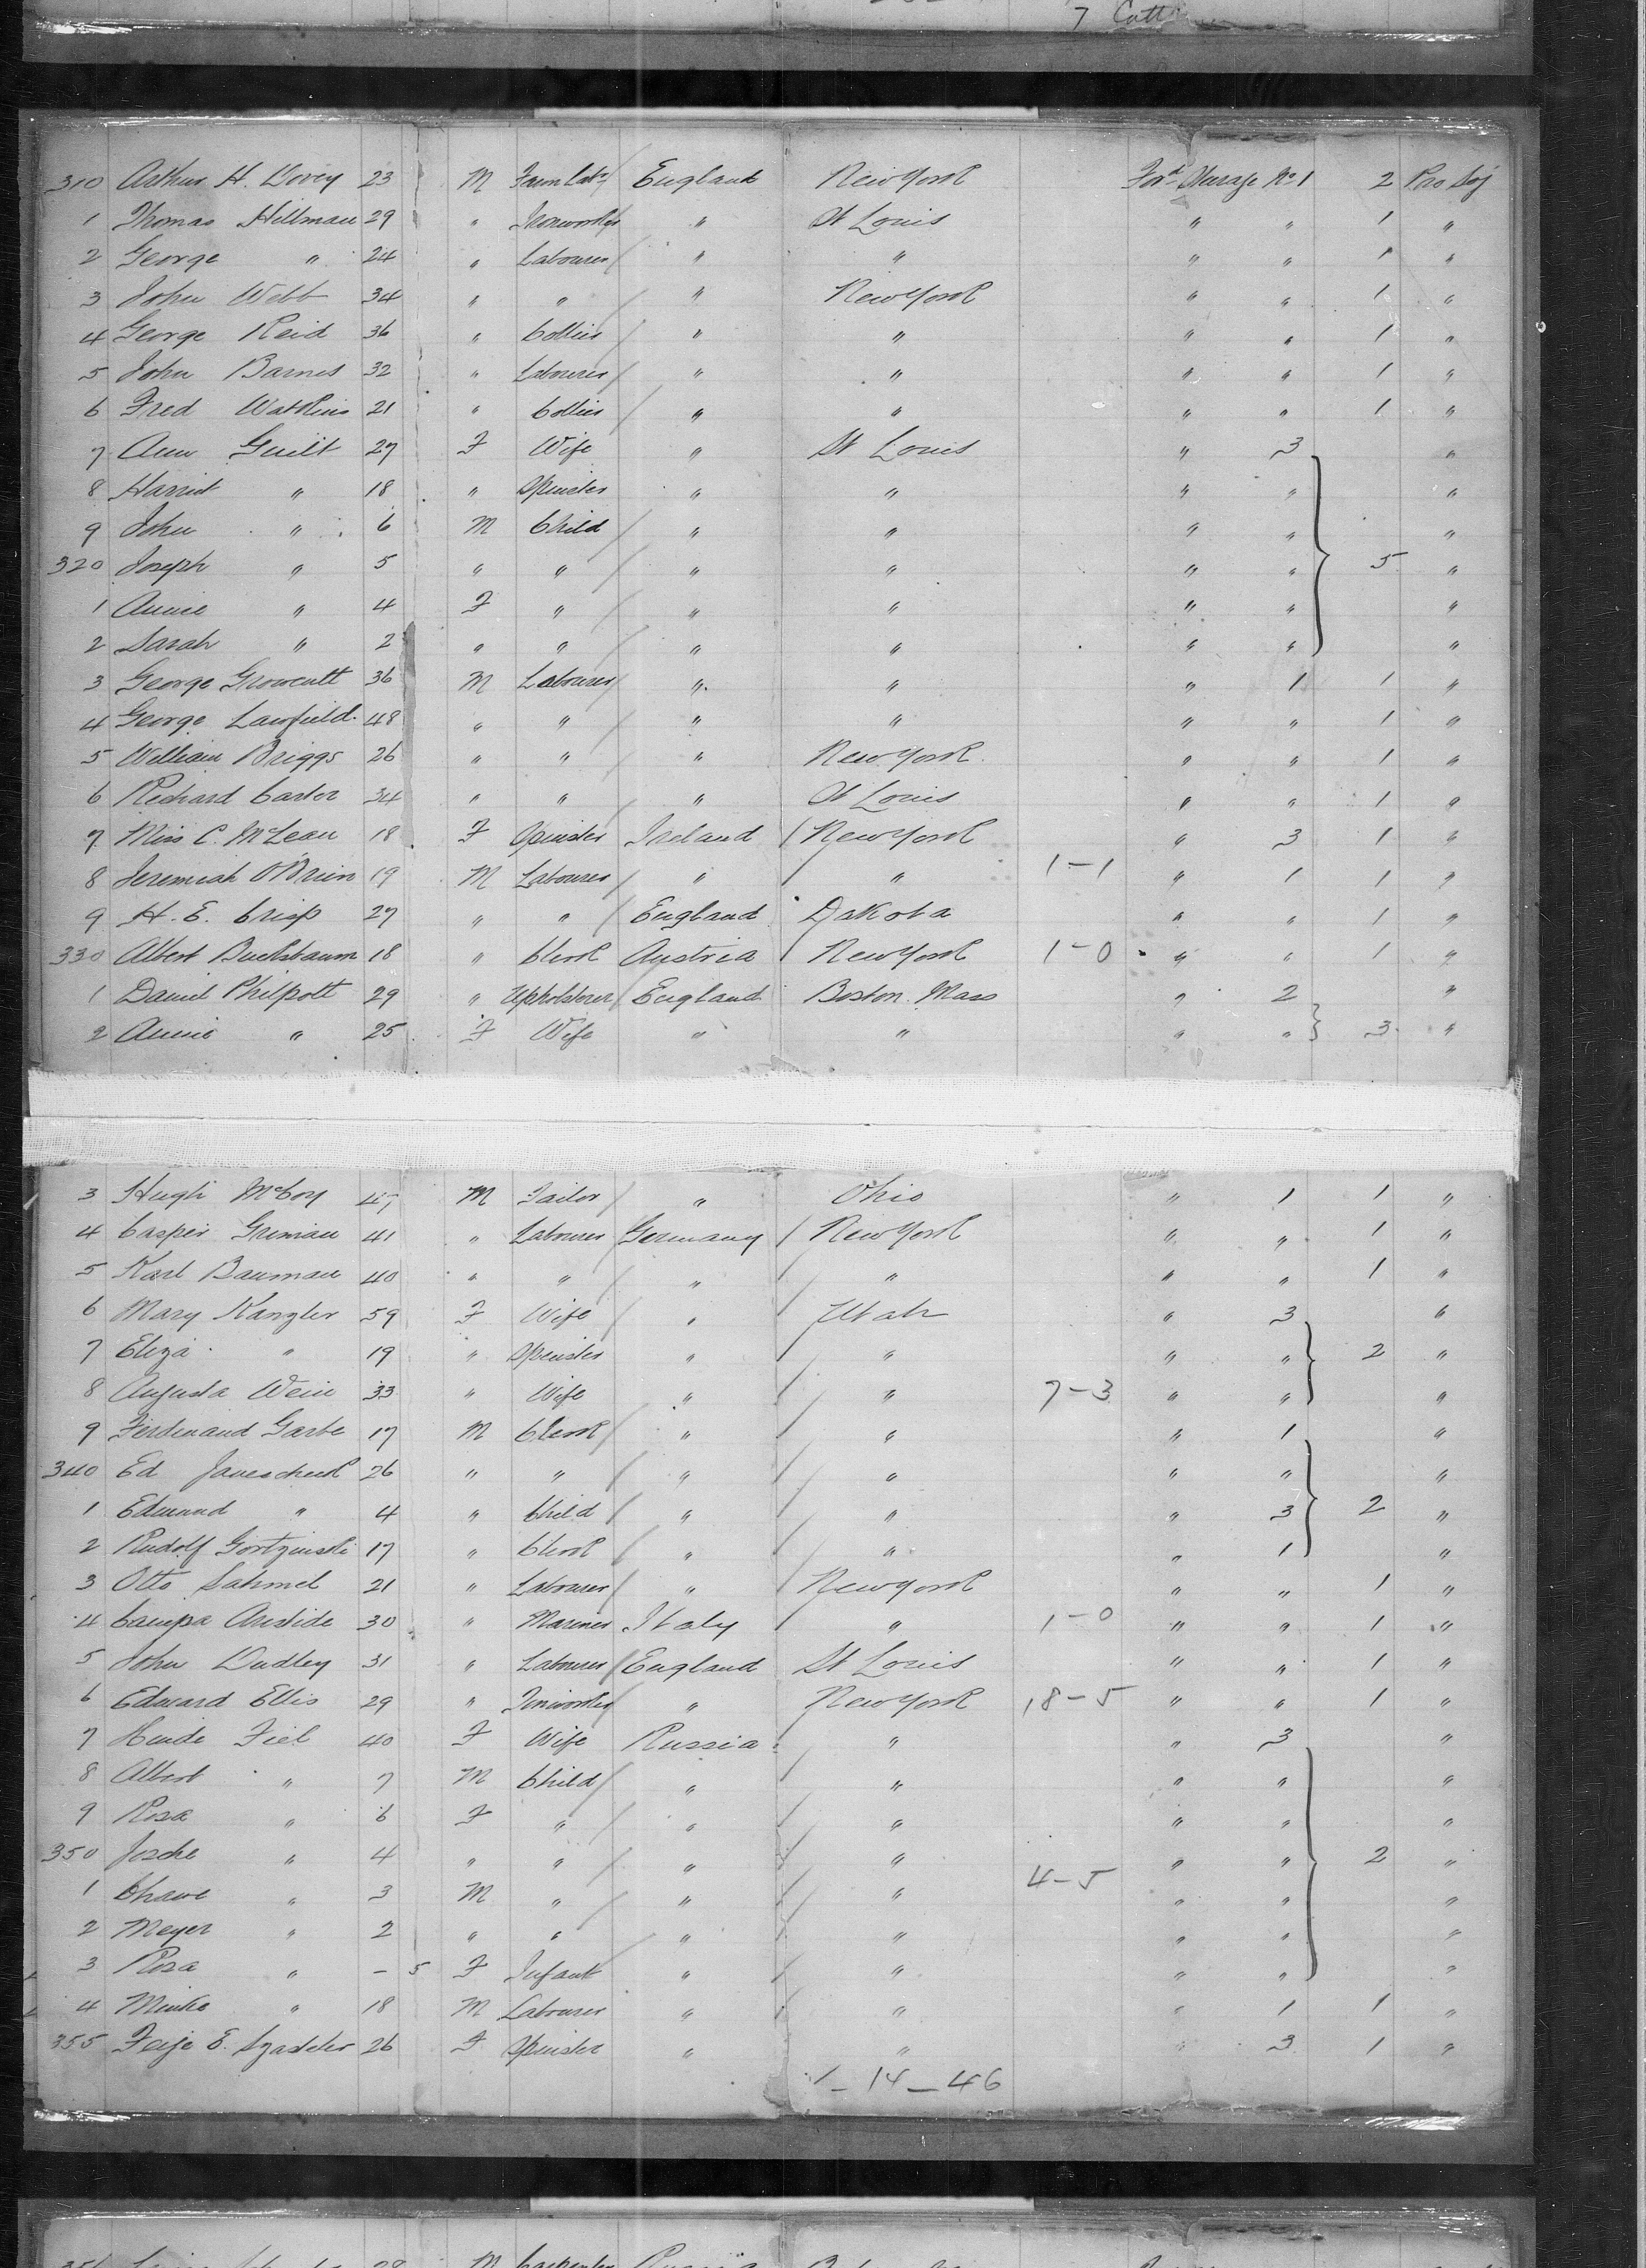 7 Catt
310 Arthur H. Dovey 23 M Farm Labr England New York Ford Steerage No 1 2 Pro Soj
1 Thomas Hillman 29 " Ironworker " St Louis " " 1 "
2 George " 24 " Labourer " " " " 1 "
3 John Webb 34 " " " New York " " 1 "
4 George Reid 36 " Collier " " " " 1 "
5 John Barnes 32 " Labourer " " " " 1 "
6 Fred Watkins 21 " Collier " " " " 1 "
7 Ann Guilt 27 F Wife " St Louis " 3 "
8 Harriet " 18 " Spinster " " " " "
9 John " 6 M Child " " " " "
320 Joseph " 5 " " " " " " 5 "
1 Annie " 4 F " " " " " "
2 Sarah " 2 " " " " " " "
3 George Growcutt 36 M Labourer " " " 1 1 "
4 George Lawfield 48 " " " " " " 1 "
5 William Briggs 26 " " " New York " " 1 "
6 Richard Carter 34 " " " St Louis " " 1 "
7 Miss C. McLean 18 F Spinster Ireland New York " 3 1 "
8 Jeremiah O'Brien 19 M Labourer " " 1-1 " 1 1 "
9 H. E. Crisp 27 " " England Dakota " " 1 "
330 Albert Buchsbaum 18 " Clerk Austria New York 1-0 " " 1 "
1 Daniel Philpott 29 " Upholsterer England Boston Mass " 2 "
2 Annie " 25 F Wife " " " " 3 "
3 Hugh McCoy 47 M Tailor " Ohio " 1 1 "
4 Casper Grimau 41 " Labourer Germany New York " " 1 "
5 Karl Bauman 40 " " " " " " 1 "
6 Mary Kanzler 59 F Wife " Utah " 3 "
7 Eliza " 19 " Spinster " " " " 2 "
8 Augusta Wein 33 " Wife " " 7-3 " " "
9 Ferdinand Garbe 17 M Clerk " " " 1 "
340 Ed 26 " " " " " " "
1 Edmund " 4 " Child " " " 3 2 "
2 Rudolf 17 " Clerk " " " 1 "
3 Otto Sahmel 21 " Labourer " New York " " 1 "
4 Campa Aristide 30 " Mariner Italy " 1-0 " " 1 "
5 John Dudley 31 " Labourer England St Louis " " 1 "
6 Edward Ellis 29 " Ironworker " New York 18-5 " " 1 "
7 Hende Fiel 40 F Wife Russia " " 3 "
8 Albert " 7 M Child " " " " "
9 Rosa " 6 F " " " " " "
350 Josche " 4 " " " " " " 2 "
1 Chawe " 3 M " " " 4-5 " " "
2 Meyer " 2 " " " " " " "
3 Rosa " - 5 F Infant " " " " "
4 Minke " 18 M Labourer " " " 1 1 "
355 Feije E. Szadeler 26 F Spinster " " " 3 1 "
1-14-46
28 M Carpenter Russia